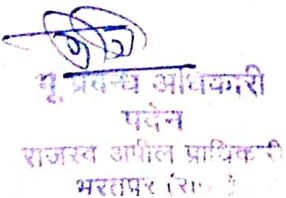 भू प्रबन्ध अधिकारी
पदेन
राजस्व अपील प्राधिकारी
भरतपुर